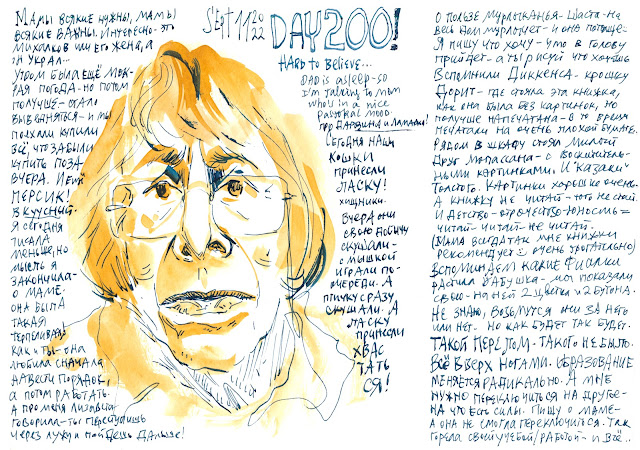 Мамы всякие нужны, мамы
всякие важны. Интересно - это
Михалков или его жена, а
он украл...
Утром была ещё мок-
рая погода - но потом
получше - стало
выясняться - и мы
поехали купили
всё, что забыли
купить поза-
вчера. И
персик!
Вкусный!
Я сегодня
писала
меньше, но
мысль я
закончила -
о маме -
она была
такая
терпеливая
как и ты - она
любила сначала
навести порядок,
а потом работать.
А про меня
говорила - ты переступишь
через лужу и пойдешь дальше!
Sept 11 2022
DAY 200!
HARD to Believe...
DAD is asleep - so
I'm talking to MOM
who's in a nice
mood
про и
Сегодня наши
кошки
принесли
ласку!
Хищники.
Вчера они
свою добычу
скушали -
с мышкой
играли по-
очереди. А
птичку сразу
скушали. А
ласку
принесли
хвас
тать
ся!
О пользе мурлыканья - Шаста - на
весь дом мурлычет - и она
Я пишу что хочу - что в голову
придёт - а ты рисуй что хочешь
Вспомнили Диккенса - Крошку
Доррит - где стояла эта книжка,
как она была без картинок, но
получше напечатана - в то время
печатали на очень плохой бумаге.
Рядом в шкафу стоял Милый
друг Мопассана - с восхититель-
ными картинками. И "Казаки"
Толстого. Картинки хорошие очень.
А книжку не читай -
И Детство - отрочество - юность =
читай - читай - не читай.
(Мила всегда так мне книжки
рекомендует = очень трогательно)
Вспоминаем какие фиалки
растила бабушка - показали
свою - на ней 2 цветка и 2 бутона.
Не знаю, возьмутся ни за него
или нет. Но как будет так будет.
Такой перелом. Такого не было.
Всё вверх ногами. Образование
меняется радикально. А мне
нужно переключиться на другое -
на что есть силы. Пишу о маме -
а она не смогла переключиться. Так
горела своей учёбой/работой - и всё..